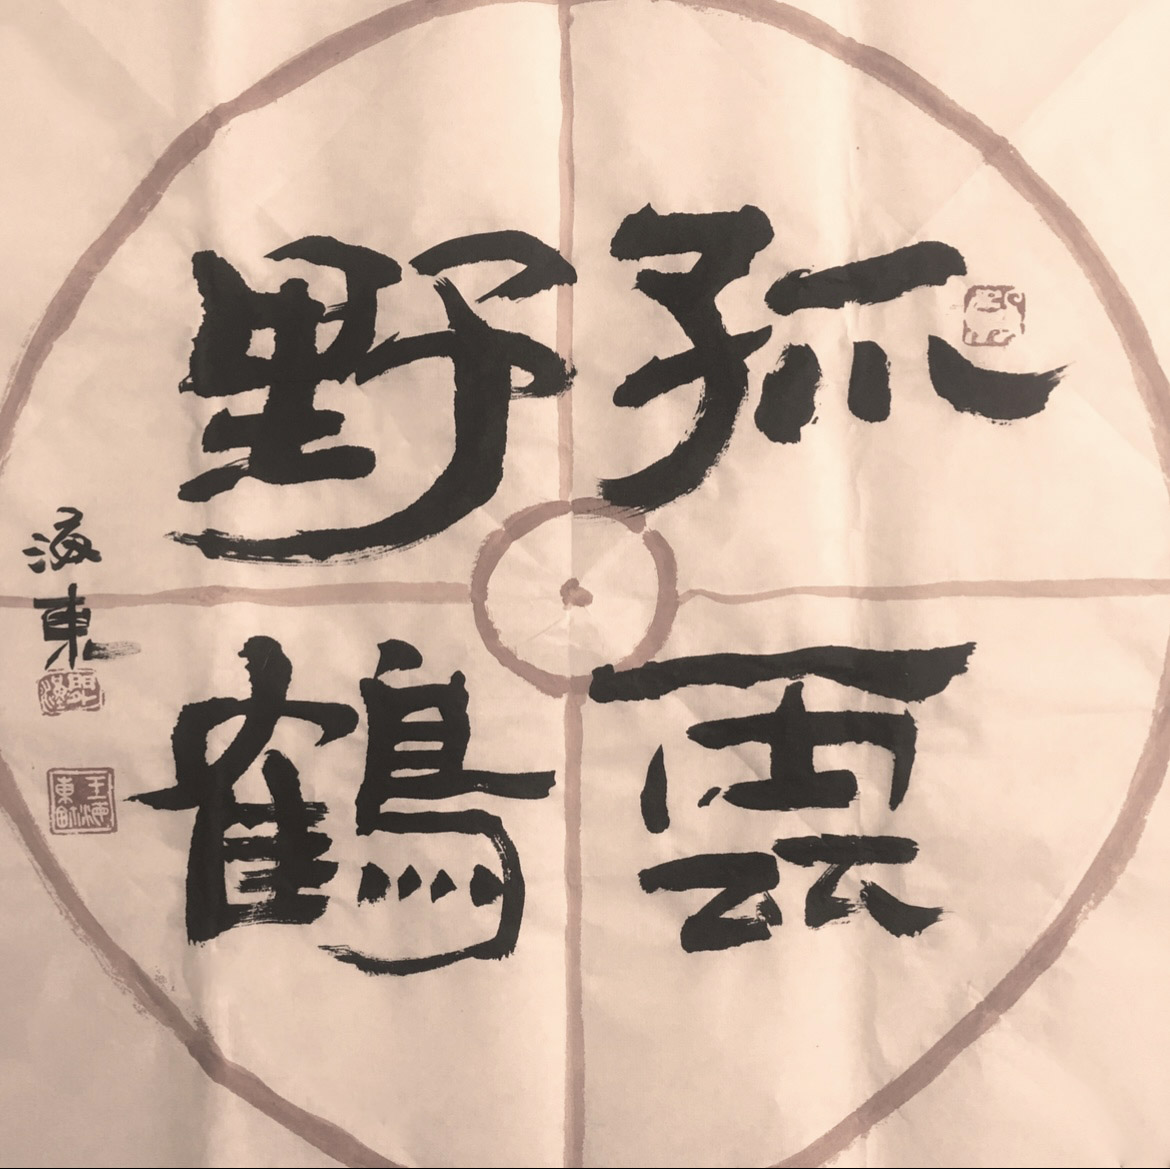 孤雲
野鶴
海東
王海東印